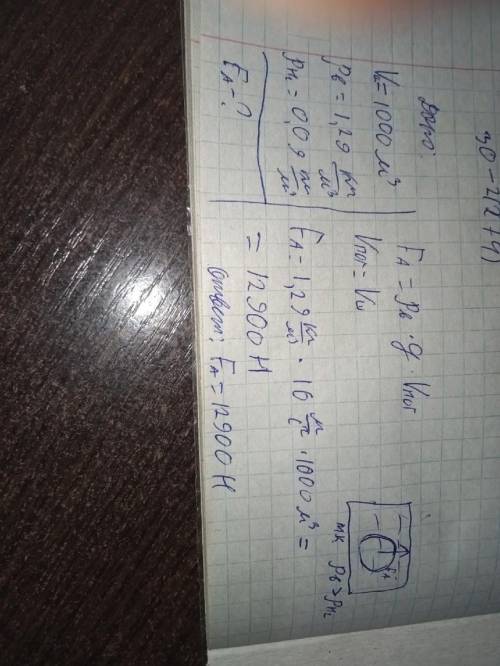 Дано:
Vш = 1000 м³
ρв = 1,29 кг/м³
ρH₂ = 0,09 кг/м³
FA - ?
FA = ρв · g · Vпог
Vпог = Vш
FA = 1,29 кг/м³ · 10 · 1000 м³ =
= 12900 Н
Ответ: FA = 12900 Н
FA
тк ρв > ρH₂